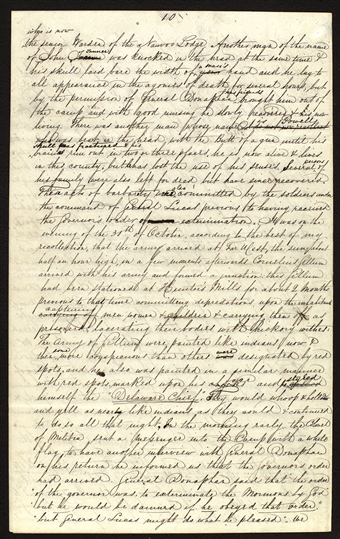 10
who is now
the senior Warden of the Nauvoo Lodge. Another man of the name
of John Tanner was knocked in the head at the same time &
his skull laid bare the width of a man's hand and he lay to
all appearance in the agonies of death for several hours, but
by the permission of General Doniphan his friends brought him out of
the camp and with good nursing he slowly recovered & is now
living. There was another man whose name is Powell
who was beat on the head with the butt of a gun until his
skull was fractured & his
brains run out in two or three places, he is now alive & lives
in this county, but has lost the use of his senses, several persons
of his family were also left for dead, but have since recovered.
These acts of barbarity were also committed by the soldiers under
the command of General Lucas previous to having received
the Governor's order of extermination. It was on the
evening of the 30th of October, according to the best of my
recollection, that the army arrived at Far West, the sun about
half an hour high, in a few moments afterwards Cornelius Gillum
arrived with his army and formed a junction this Gillum
had been stationed at Hunter's Mills for about 2 months
previous to that time committing depredations upon the inhabitants
capturing men women & children & carrying them off as
prisoners, lacerating their bodies with hickory withes.
The army of Gillum were painted like indians, some
were more conspicuous than others were designated by red
spots, and he also was painted in a similar manner
with red spots marked upon his face and styled
himself the "Delaware Chief." They would whoop & halloo
and yell as nearly like indians as they could & continued
to do so all that night. In the morning early the Colonel
of Militia, sent a messenger into the Camp with a white
flag to have another interview with General Doniphan
on his return he informed us that the governor's order
had arrived. General Doniphan said that the order
of the governor was, to exterminate the Mormons by God
but he would be damned if he obeyed that order
but General Lucas might do what he pleased. We